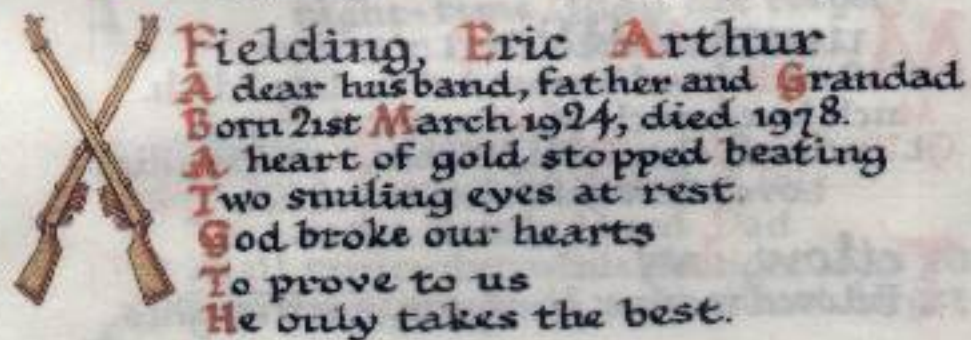 Fielding, Eric Arthur
A dear husband, father and Grandad
Born 21st March 1924, died 1978.
A heart of gold stopped beating
Two smiling eyes at rest.
God broke our hearts
To prove to us
He only takes the best.